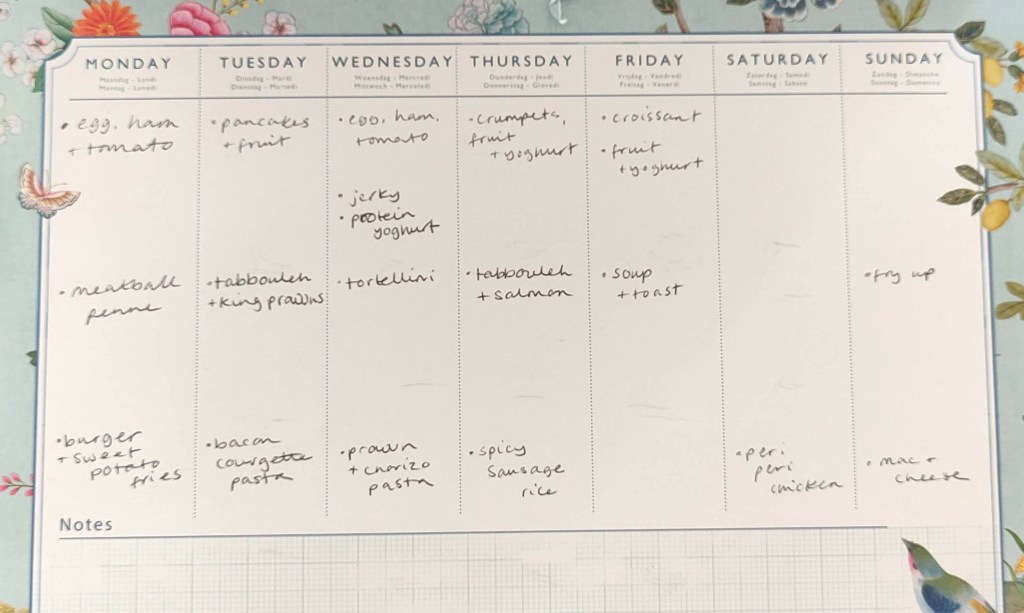 MONDAY
Maandag - Lundi
Montag - Lunedi
• egg, ham
+ tomato
• meatball
penne
• burger
+ sweet
potato
fries
TUESDAY
Dinsdag - Mardi
Dienstag - Martedi
• pancakes
+ fruit
• tabbouleh
+ king prawns
• bacon
courgette
pasta
WEDNESDAY
Woensdag - Mercredi
Mittwoch - Mercoledi
• egg, ham,
tomato
• jerky
• protein
yoghurt
• tortellini
• prawn
+ chorizo
pasta
THURSDAY
Donderdag - Jeudi
Donnerstag - Giovedi
• crumpets,
fruit
+ yoghurt
• tabbouleh
+ salmon
• spicy
sausage
rice
FRIDAY
Vrijdag - Vendredi
Freitag - Venerdi
• croissant
• fruit
+ yoghurt
• soup
+ toast
SATURDAY
Zaterdag - Samedi
Samstag - Sabato
• peri
peri
chicken
SUNDAY
Zondag - Dimanche
Sonntag - Domenica
• fry up
• mac +
cheese
Notes